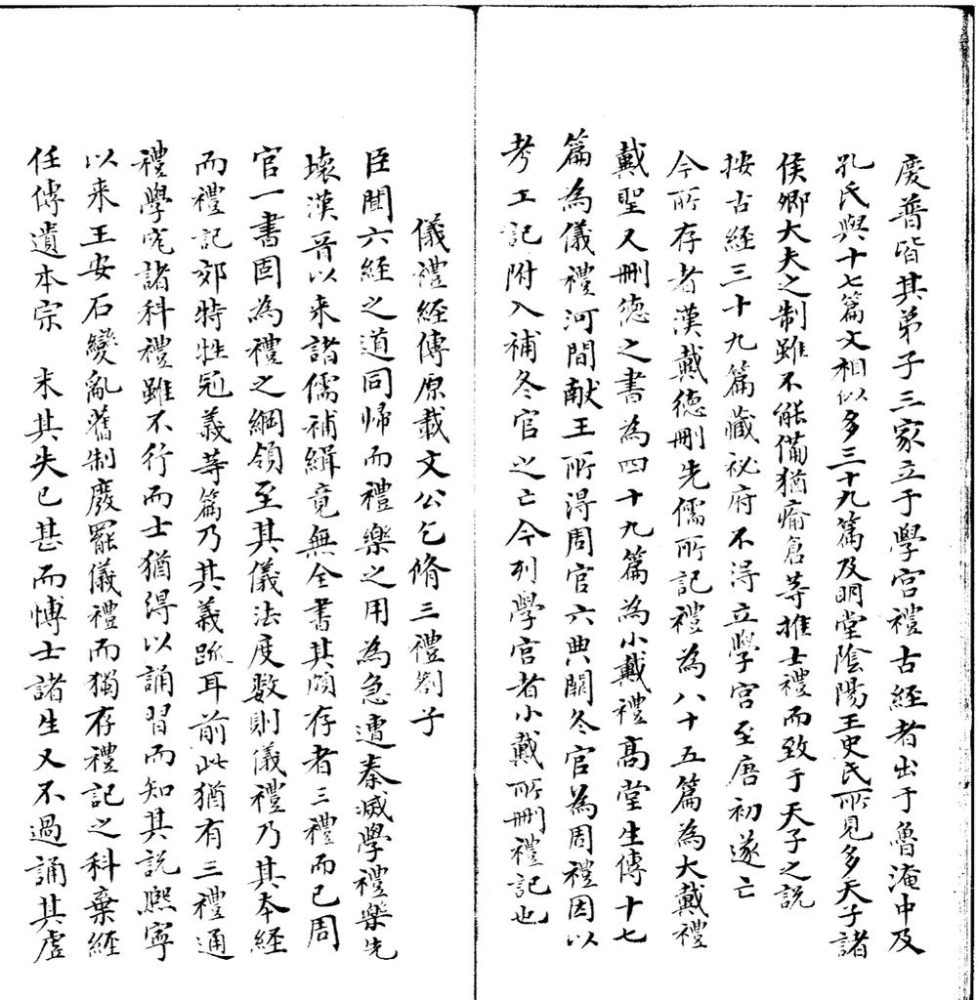 慶普皆其弟子三家立于學宫禮古經者出于魯淹中及
孔氏與十七篇文相似多三十九篇及明堂陰陽王史氏所見多天子諸
侯卿大夫之制雖不能備猶瘉倉等推士禮而致于天子之説
按古經三十九篇藏祕府不得立學宫至唐初遂亡
今所存者漢戴德刪先儒所記禮為八十五篇為大戴禮
戴聖又刪德之書為四十九篇為小戴禮髙堂生傳十七
篇為儀禮河間献王所淂周官六典闕冬官為周禮因以
考工記附入補冬官之亡今列學宫者小戴所刪禮記也
儀禮經傳原載文公乞脩三禮劄子
臣聞六經之道同歸而禮樂之用為急遭秦滅學禮樂先
壊漢晉以来諸儒補緝竟無全書其頗存者三禮而已周
官一書固為禮之綱領至其儀法度数則儀禮乃其本經
而禮記郊特牲冠義等篇乃其義疏耳前此猶有三禮通
禮學究諸科禮雖不行而士猶得以誦習而知其説熈寧
以来王安石變亂舊制廢罷儀禮而獨存禮記之科棄經
任傳遺本宗 末其失已甚而愽士諸生又不過誦其虚